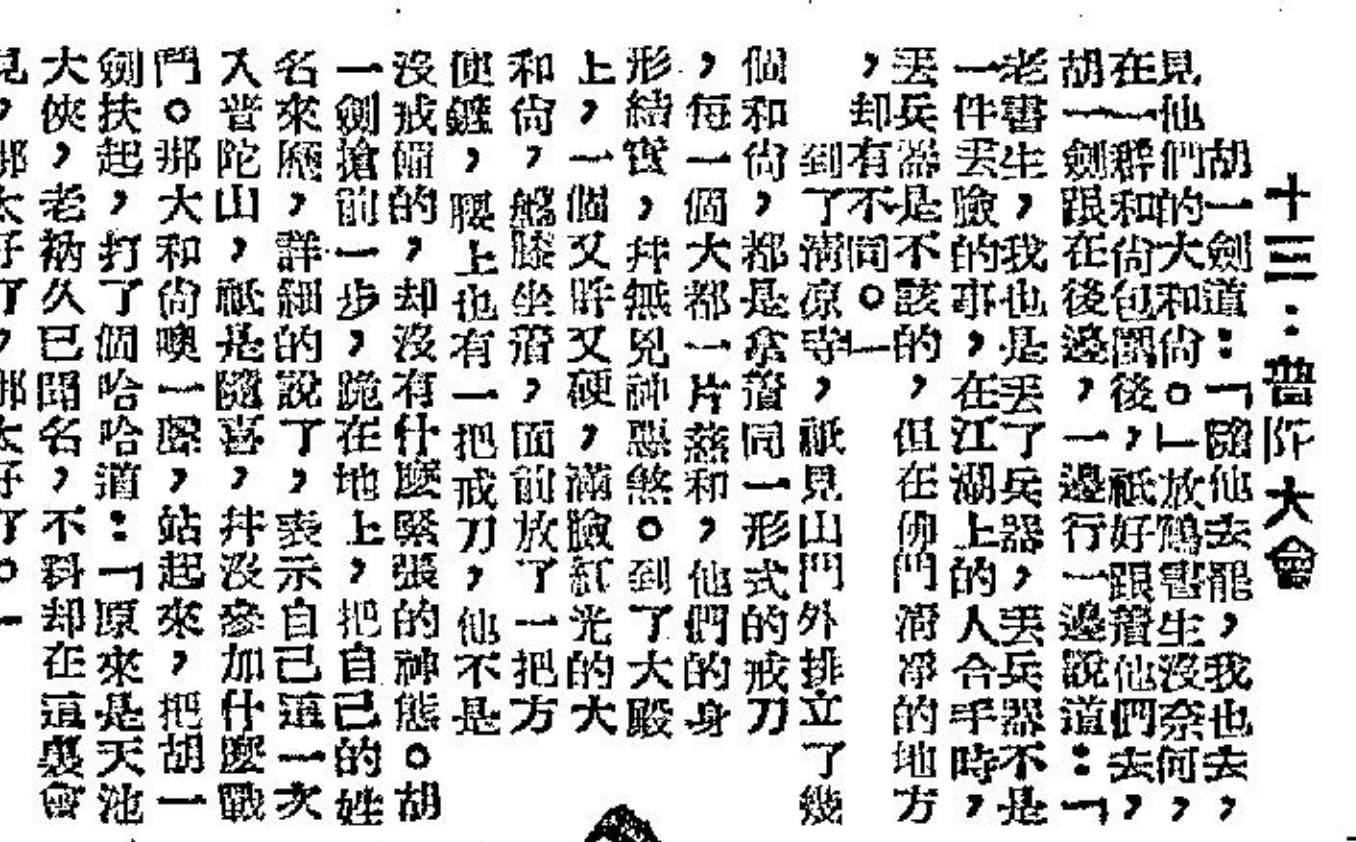 十三：普陀大會
胡一劍道：「隨他去罷，我也去，
見他們的大和尚。」放鶴書生沒奈何，
在一群和尚包圍後，祇好跟着他們去，
胡一劍跟在後邊，一邊行一邊說道：「
老書生，我也是丟了兵器，丟兵器不是
一件丟臉的事，在江湖上的人合手時，
丟兵器是不該的，但在佛門清淨的地方
，却有不同。」
到了清凉寺，祇見山門外排立了幾
個和尚，都是拿着同一形式的戒刀
，每一個大都一片慈和，他們的身
形結實，幷無兇神惡煞。到了大殿
上，一個又胖又硬，滿臉紅光的大
和尚，盤膝坐着，面前放了一把方
便鏟，腰上也有一把戒刀，他不是
沒戒備的，却沒有什麽緊張的神態。胡
一劍搶前一步，跪在地上，把自己的姓
名來歷，詳細的說了，表示自己這一次
入普陀山，祇是隨喜，幷沒參加什麽戰
鬥。那大和尚噢一聲，站起來，把胡一
劍扶起，打了個哈哈道：「原來是天池
大俠，老衲久已聞名，不料却在這裏會
見，那太好了，那太好了。」